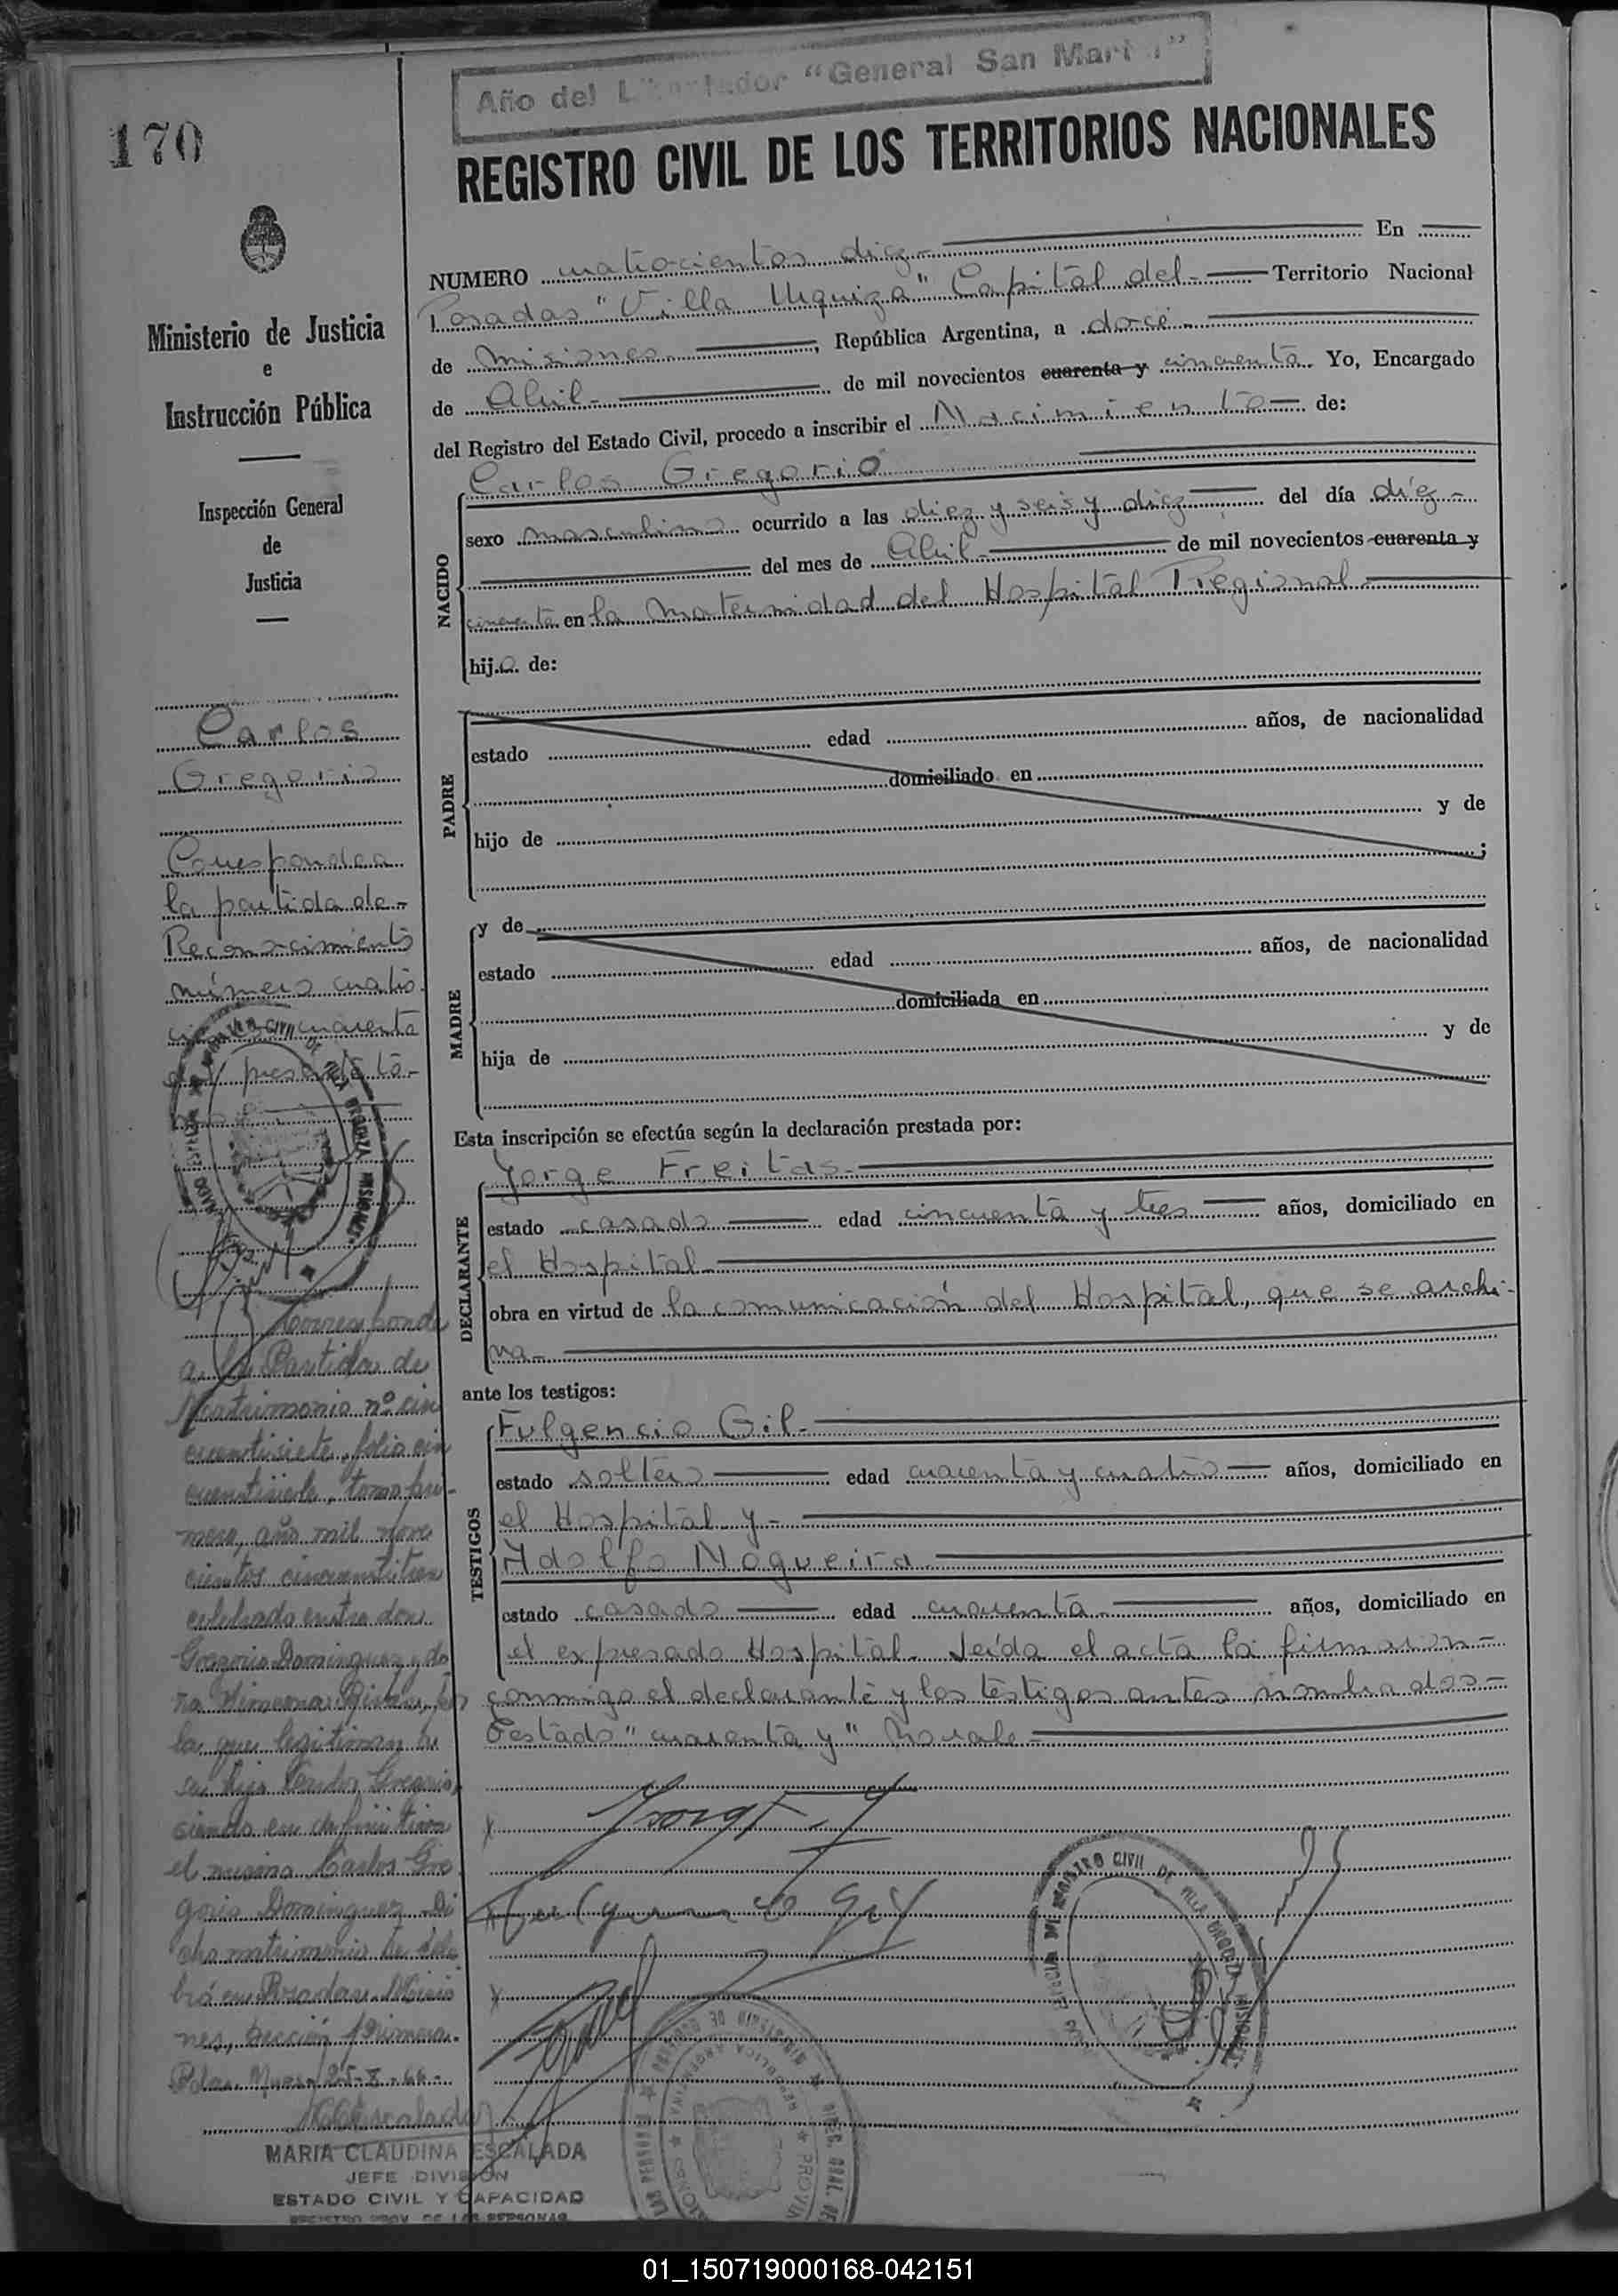 Año del Libertador "General San Martin"
170
REGISTRO CIVIL DE LOS TERRITORIOS NACIONALES
NUMERO cuatrocientos diez En
Posadas "Villa Urquiza" Capital del Territorio Nacional
de Misiones, República Argentina, a doce
de Abril de mil novecientos cuarenta y cincuenta Yo, Encargado
del Registro del Estado Civil, procedo a inscribir el Nacimiento de:
Ministerio de Justicia
e
Instrucción Pública
Inspección General
de
Justicia
NACIDO
Carlos Gregorio
sexo masculino ocurrido a las diez y seis y diez del día diez
del mes de Abril de mil novecientos cuarenta y
cincuenta en la Maternidad del Hospital Regional
hijo de:
Carlos
Gregorio
Corresponde a
la partida de
Reconocimiento
número cuatro
cincuenta
presente to-
PADRE
estado edad años, de nacionalidad
domiciliado en
hijo de y de
;
MADRE
y de
estado edad años, de nacionalidad
domiciliada en
hija de y de
Esta inscripción se efectúa según la declaración prestada por:
DECLARANTE
Jorge Freitas
estado casado edad cincuenta y tres años, domiciliado en
el Hospital
obra en virtud de la comunicación del Hospital, que se archi-
va
ante los testigos:
TESTIGOS
Fulgencio Gil
estado soltero edad cuarenta y cuatro años, domiciliado en
el Hospital y
Adolfo Nogueira
estado casado edad cuarenta años, domiciliado en
el expresado Hospital. Leída el acta la firmaron
conmigo el declarante y los testigos antes nombrados
Testado "cuarenta y" No vale
Corresponde
a la Partida de
Matrimonio nº cin
cuentisiete, folio cin
cuentisiete, tomo pri-
mero, año mil nove
cientos cincuentitres
celebrado entre don
Gregorio Dominguez y do
ña
la que legitiman a
su hijo Carlos Gregorio,
siendo en definitiva
el mismo Carlos Gre
gorio Dominguez. Di
cho matrimonio se cele
bró en Posadas, Misio
nes, Sección Primera.
Pdas. 25-X-66
MARIA CLAUDINA ESCALADA
JEFE DIVISION
ESTADO CIVIL Y CAPACIDAD
REGISTRO PROV. DE LAS PERSONAS
REGISTRO CIVIL DE VILLA URQUIZA MISIONES
01_150719000168-042151